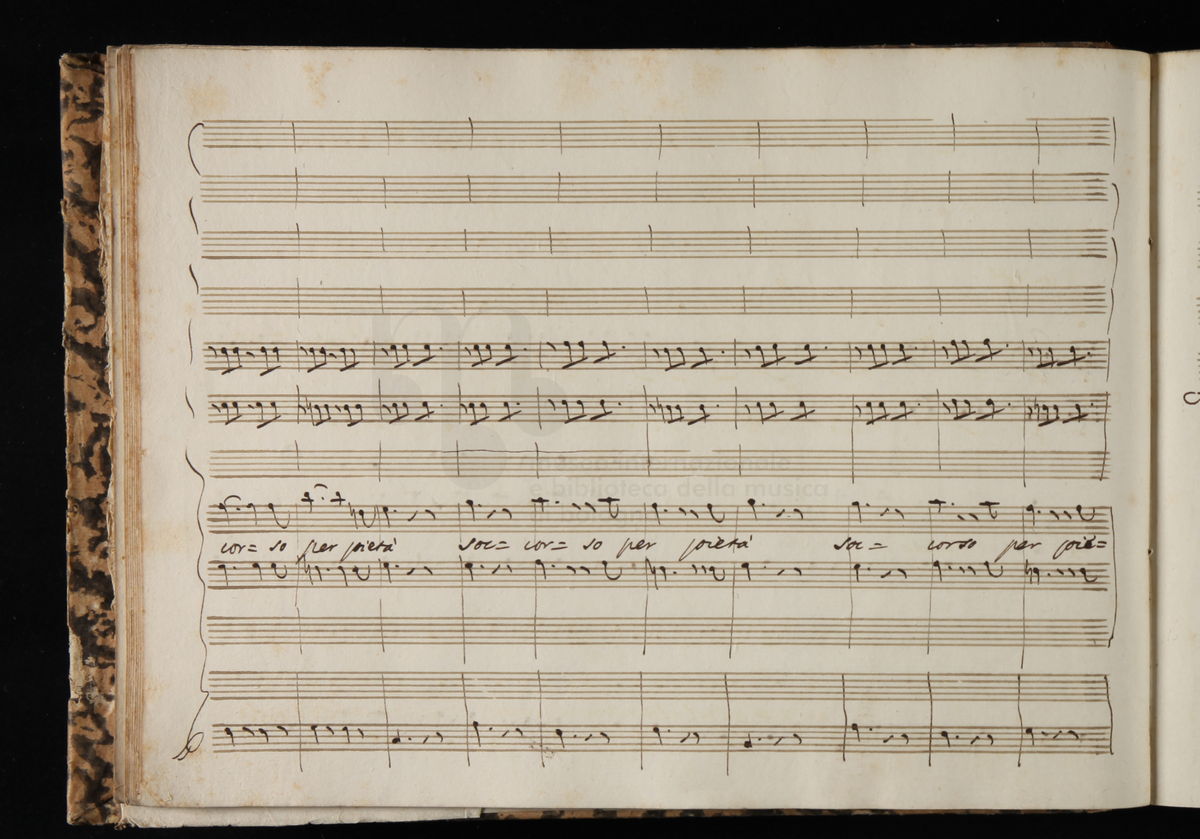 museo internazionale
e biblioteca della musica
cor= so per pietà soc= cor= so per pietà soc= corso per pie=